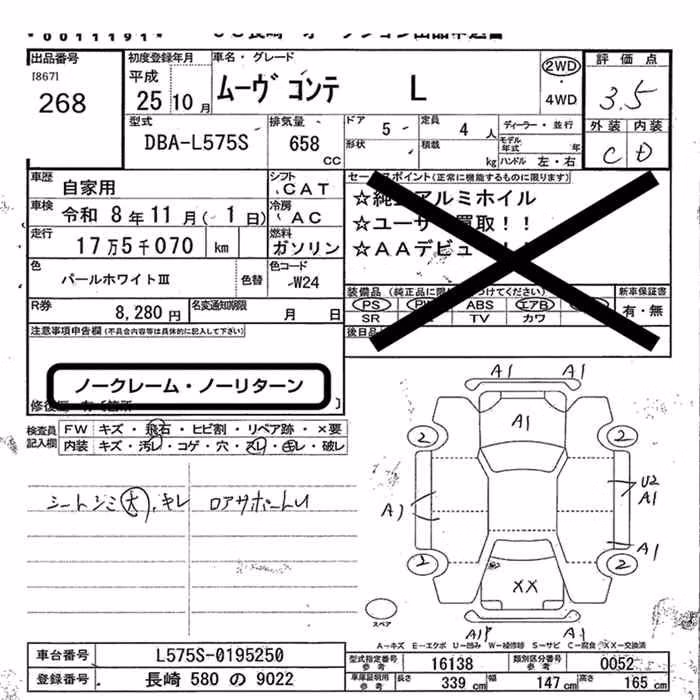 0011191
出品番号 初度登録年月 車名・グレード 評価点
[867] 平成 ムーヴ コンテ L 2WD
268 25年10月 ・4WD 3.5
型式 排気量 ドア 5 定員 4人 ディーラー・並行 外装 内装
DBA-L575S 658 CC 形状 積載 kg モデル年式 年 C D
ハンドル 左・右
車歴 自家用 シフト CAT
車検 令和 8年11月(- 1日) 冷房 AC
走行 17万5千070 km 燃料 ガソリン
色 パールホワイトⅢ 色替 色コード W24
R券 8,280円 名変通知期限 月 日
セールスポイント(正常に機能するものに限ります)
☆純正アルミホイル
☆ユーザー買取!!
☆AAデビュー!!
装備品 (純正品に限り○をつけてください) 新車保証書
PS PW ABS エアB 有・無
SR TV カワ
後日品
注意事項申告欄(不具合内容等は具体的に記入して下さい)
ノークレーム・ノーリターン
検査員記入欄 FW キズ・飛石・ヒビ割・リペア跡・×要
内装 キズ・汚レ・コゲ・穴・スレ・キレ・破レ
シートシミ大、キレ ロアサポートU
A1 A1
A1
2 2
U2
A1 A1
A1
2 2
XX
A1 A1
スペア
A-キズ E-エクボ U-凹み W-補修跡 S-サビ C-腐食 XX-交換済
車台番号 L575S-0195250 型式指定番号 参考 16138 類別区分番号 参考 0052
登録番号 長崎 580 の 9022 車庫証明用 参考 長さ 339 cm 幅 147 cm 高さ 165 cm